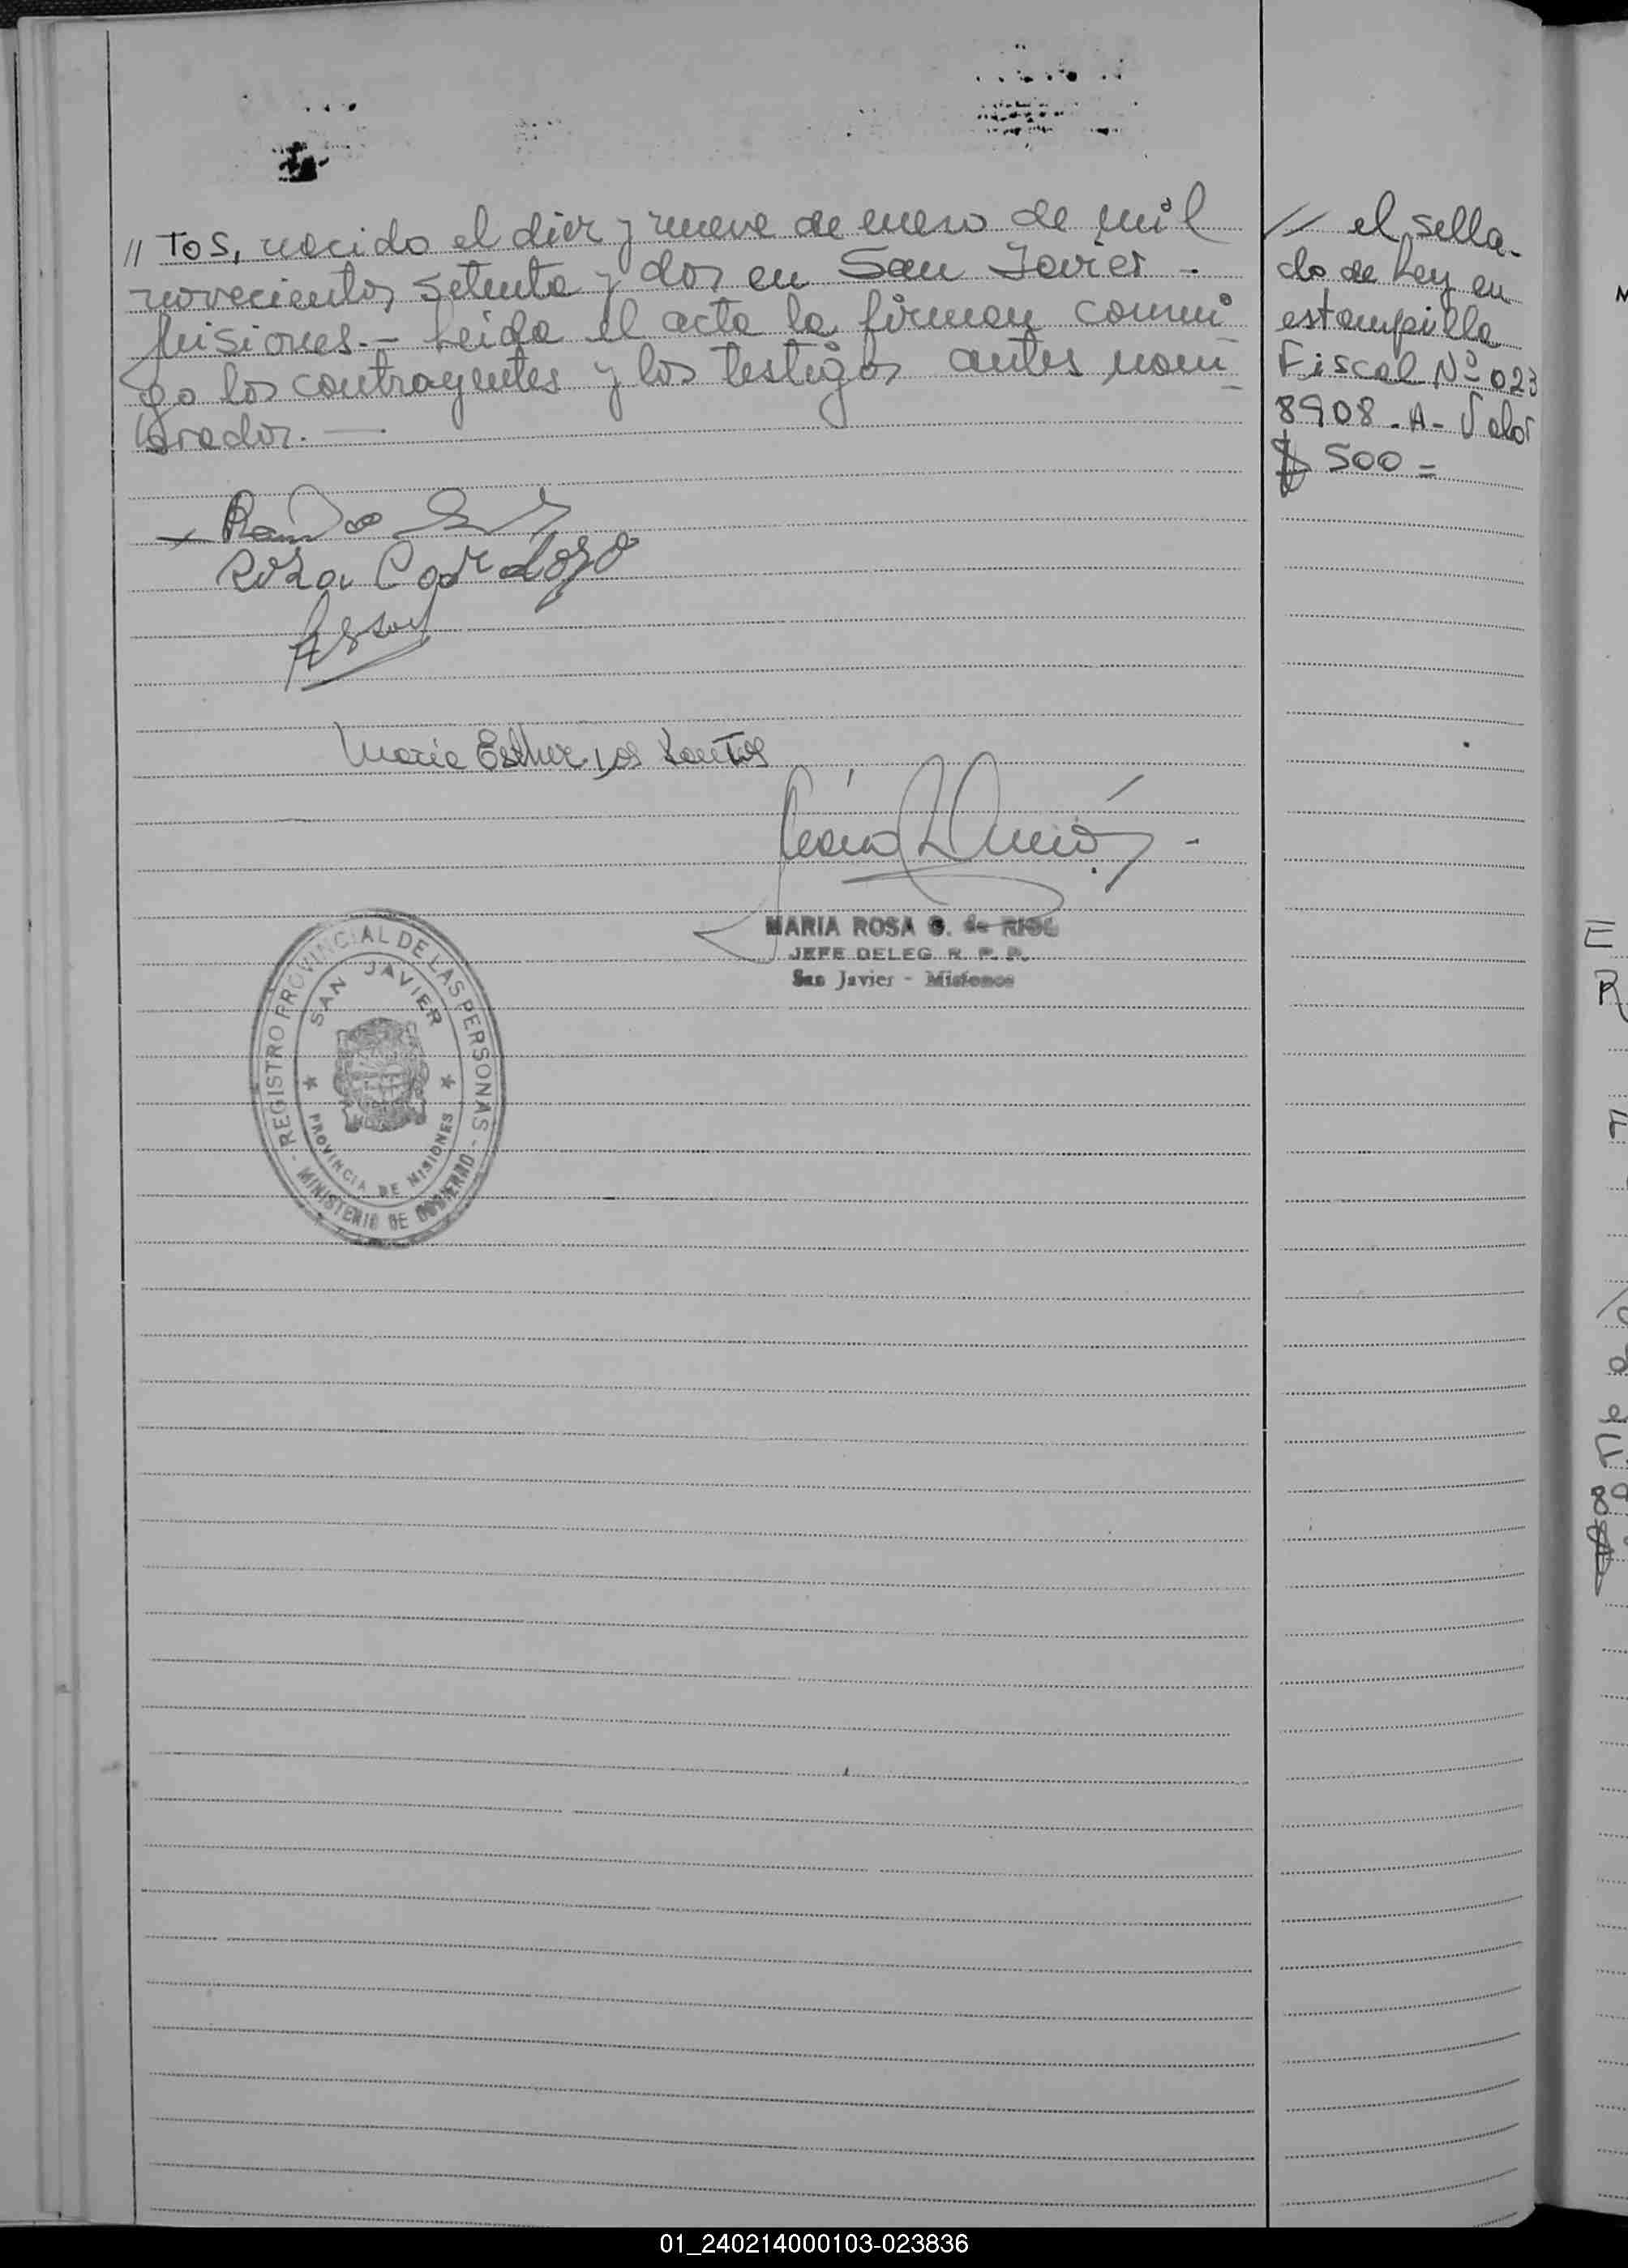 // Tos, nacido el diez y nueve de enero de mil
novecientos setenta y dos en San Javier -
Misiones.- Leida el acta la firman conmi
go los contrayentes y los testigos antes nom
brados.—
// el sella-
do de Ley en
estampilla
Fiscal Nº 023
8908-A- Valor
$ 500=
Rosa Cardozo
Maria Esther Dos Santos
MARIA ROSA G. de RIOS
JEFE DELEG. R. P. P.
San Javier - Misiones
- REGISTRO PROVINCIAL DE LAS PERSONAS -
MINISTERIO DE GOBIERNO
SAN JAVIER
PROVINCIA DE MISIONES
01_240214000103-023836